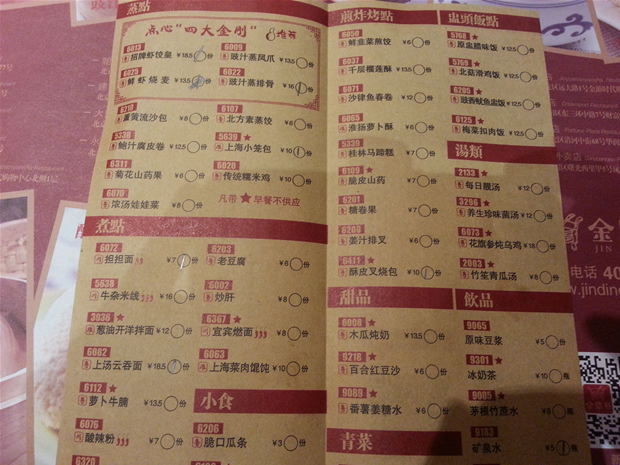 蒸點
點心"四大金剛"推薦
6013
招牌虾饺皇 ¥18.5 份
6009
豉汁蒸凤爪 ¥13.5 份
6025
鲜虾烧麦 ¥13.5 份
6022
豉汁蒸排骨 ¥16 份
蛋黄流沙包 ¥8 份
6107
北方素蒸饺 ¥6 份
5338
鲍汁腐皮卷 ¥12.5 份
5639 ★
上海小笼包 ¥10 份
6311
菊花山药果 ¥6 份
6028
传统糯米鸡 ¥10 份
6070
浓汤娃娃菜 ¥8 份
凡带★早餐不供应
煮點
6072
担担面 ¥7 份
6203
老豆腐 ¥6 份
5838
牛杂米线 ¥16 份
6002
炒肝 ¥8 份
3936 ★
葱油开洋拌面 ¥12 份
6367 ★
宜宾燃面 ¥8 份
6062
上汤云吞面 ¥18.5 份
6063
上海菜肉馄饨 ¥10 份
6112 ★
萝卜牛腩 ¥13.5 份
6076
酸辣粉 ¥7 份
6320
小食
6206
脆口瓜条 ¥3 份
煎炸烤點
6056
鲜韭菜煎饺 ¥6 份
6037
千层榴莲酥 ¥13.5 份
6071
沙律鱼春卷 ¥12 份
6065
淮扬萝卜酥 ¥6 份
5339
桂林马蹄糕 ¥7 份
6109 ★
脆皮山药 ¥7 份
6201
糖卷果 ¥7 份
姜汁排叉 ¥6 份
6411 ★
酥皮叉烧包 ¥10 份
甜品
6008 ★
木瓜炖奶 ¥13.5 份
9218 ★
百合红豆沙 ¥6 份
9089 ★
番薯姜糖水 ¥6 份
青菜
盅頭飯點
5768 ★
原盅腊味饭 ¥12.5 份
5769 ★
北菇滑鸡饭 ¥12.5 份
6205 ★
豉香鱿鱼盅饭 ¥12.5 份
6125 ★
梅菜扣肉饭 ¥12.5 份
湯類
2133 ★
每日靓汤 ¥12 份
3296 ★
养生珍味菌汤 ¥12 份
6073 ★
花旗参炖乌鸡 ¥16 份
2063 ★
竹笙青瓜汤 ¥8 份
飲品
9065
原味豆浆 ¥5 份
9301 ★
冰奶茶 ¥10 瓶
9005 ★
茅根竹蔗水 ¥8 份
9183
矿泉水 ¥5 瓶
金
JIN
电话 40
www.jindin